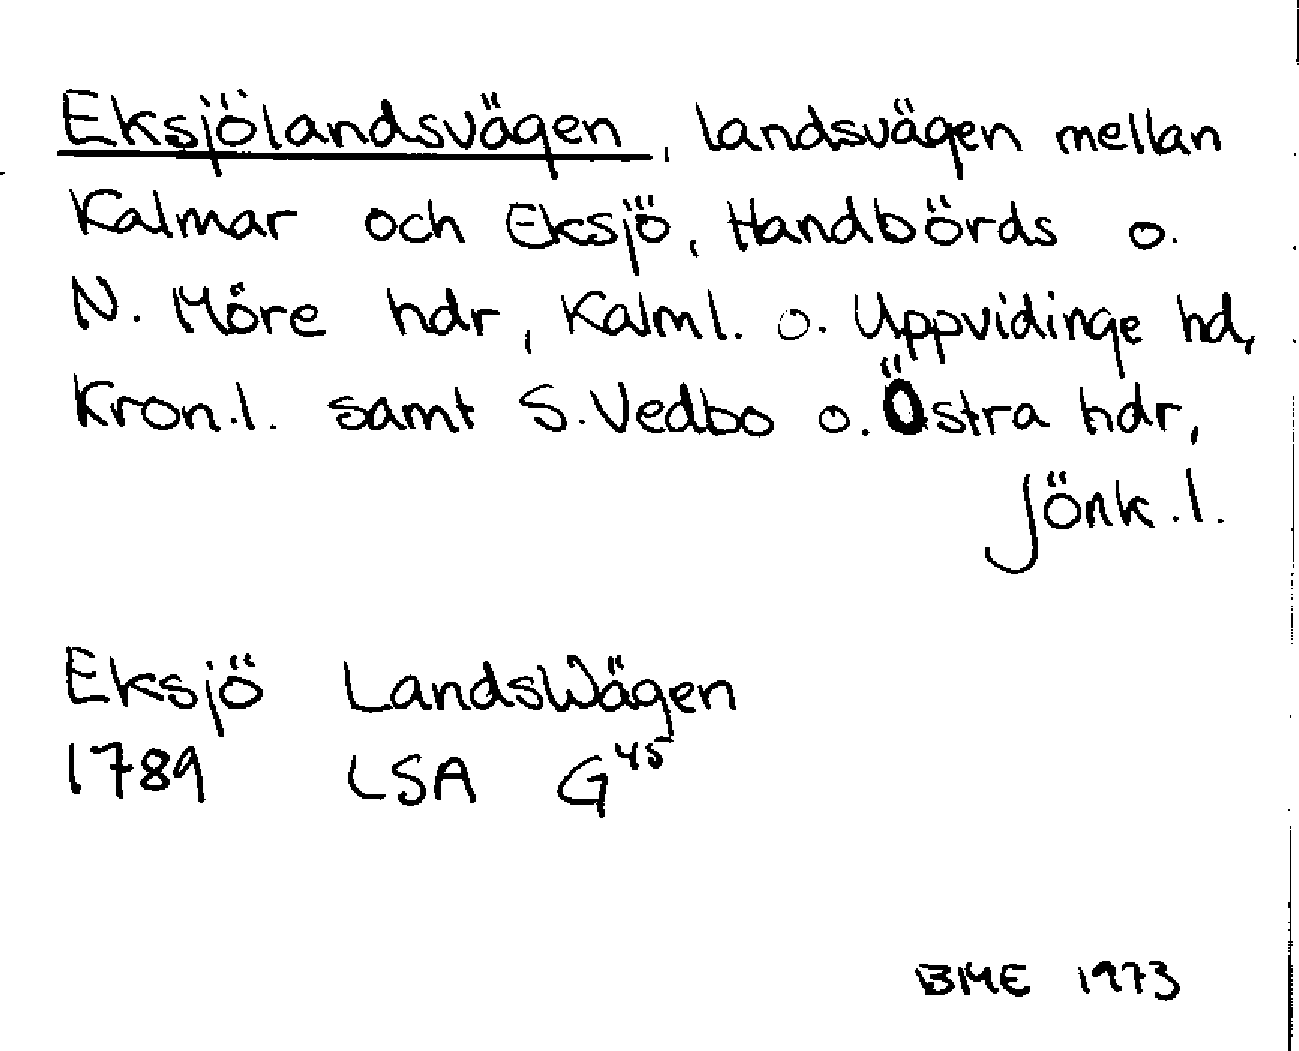 Eksjölandsvägen, landsvägen mellan
Kalmar och Eksjö, Handbörds o.
N. Möre hdr, Kalml. o. Uppvidinge hd,
Kron.l. samt S. Vedbo o. Östra hdr,
Jönk.l.
Eksjö LandsWägen
1789 LSA G45
BME 1973